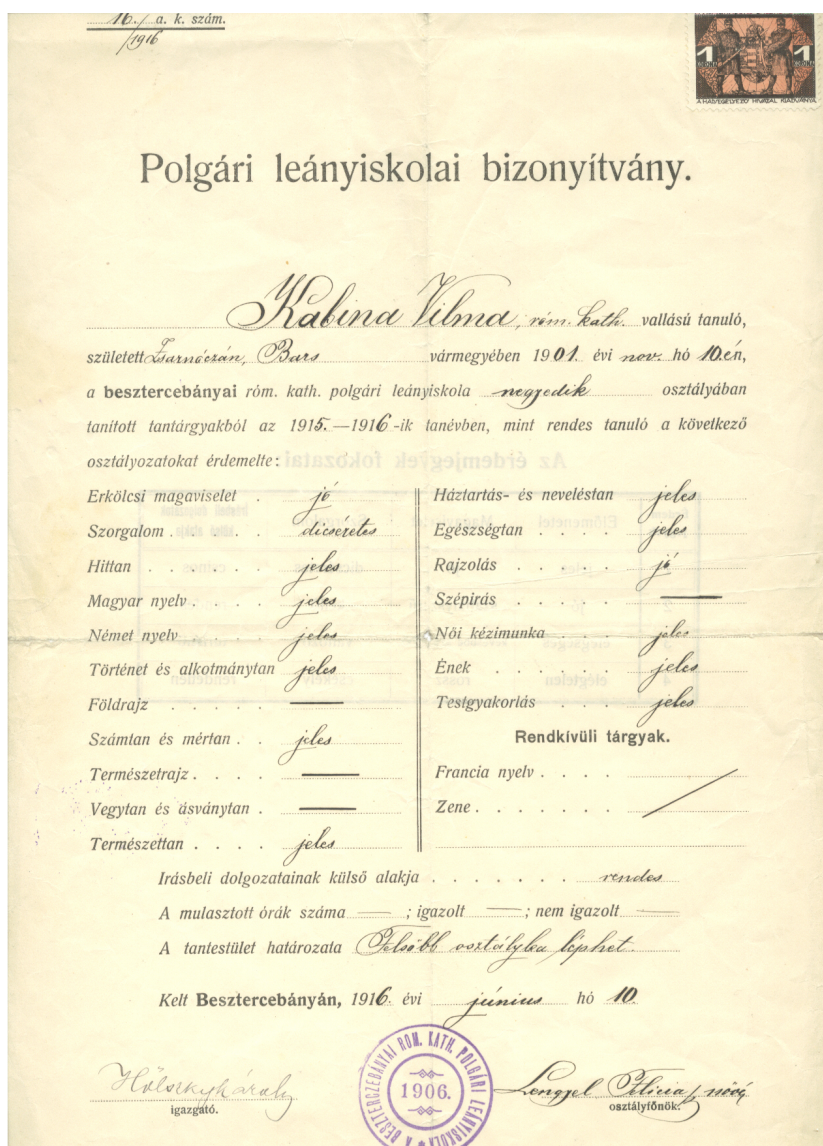 16./ a. k. szám.
/1916
1 1
A HADSEGÉLYEZŐ HIVATAL KIADVÁNYA
Polgári leányiskolai bizonyítvány.
Kabina Vilma, róm. kath. vallású tanuló,
született Zsarnóczán, Bars vármegyében 1901. évi nov. hó 10.én,
a besztercebányai róm. kath. polgári leányiskola negyedik osztályában
tanított tantárgyakból az 1915.—1916-ik tanévben, mint rendes tanuló a következő
osztályozatokat érdemelte:
Erkölcsi magaviselet . jó
Szorgalom . . . . dicséretes
Hittan . . . . . . jeles
Magyar nyelv . . . . jeles
Német nyelv . . . . jeles
Történet és alkotmánytan jeles
Földrajz . . . . . —
Számtan és mértan . . jeles
Természetrajz . . . . —
Vegytan és ásványtan . —
Természettan . . . . jeles
Háztartás- és neveléstan jeles
Egészségtan . . . . jeles
Rajzolás . . . . . jó
Szépirás . . . . . —
Női kézimunka . . . jeles
Ének . . . . . . jeles
Testgyakorlás . . . jeles
Rendkívüli tárgyak.
Francia nyelv . . . .
Zene . . . . . . .
Irásbeli dolgozatainak külső alakja . . . . . . . rendes
A mulasztott órák száma — ; igazolt — ; nem igazolt —
A tantestület határozata Felsőbb osztályba léphet.
Kelt Besztercebányán, 1916. évi június hó 10.
A BESZTERCZEBÁNYAI ROM. KATH. POLGÁRI LEÁNYISKOLA
1906.
Hölszky Károly
igazgató.
Lengyel Felicia
osztályfőnök.